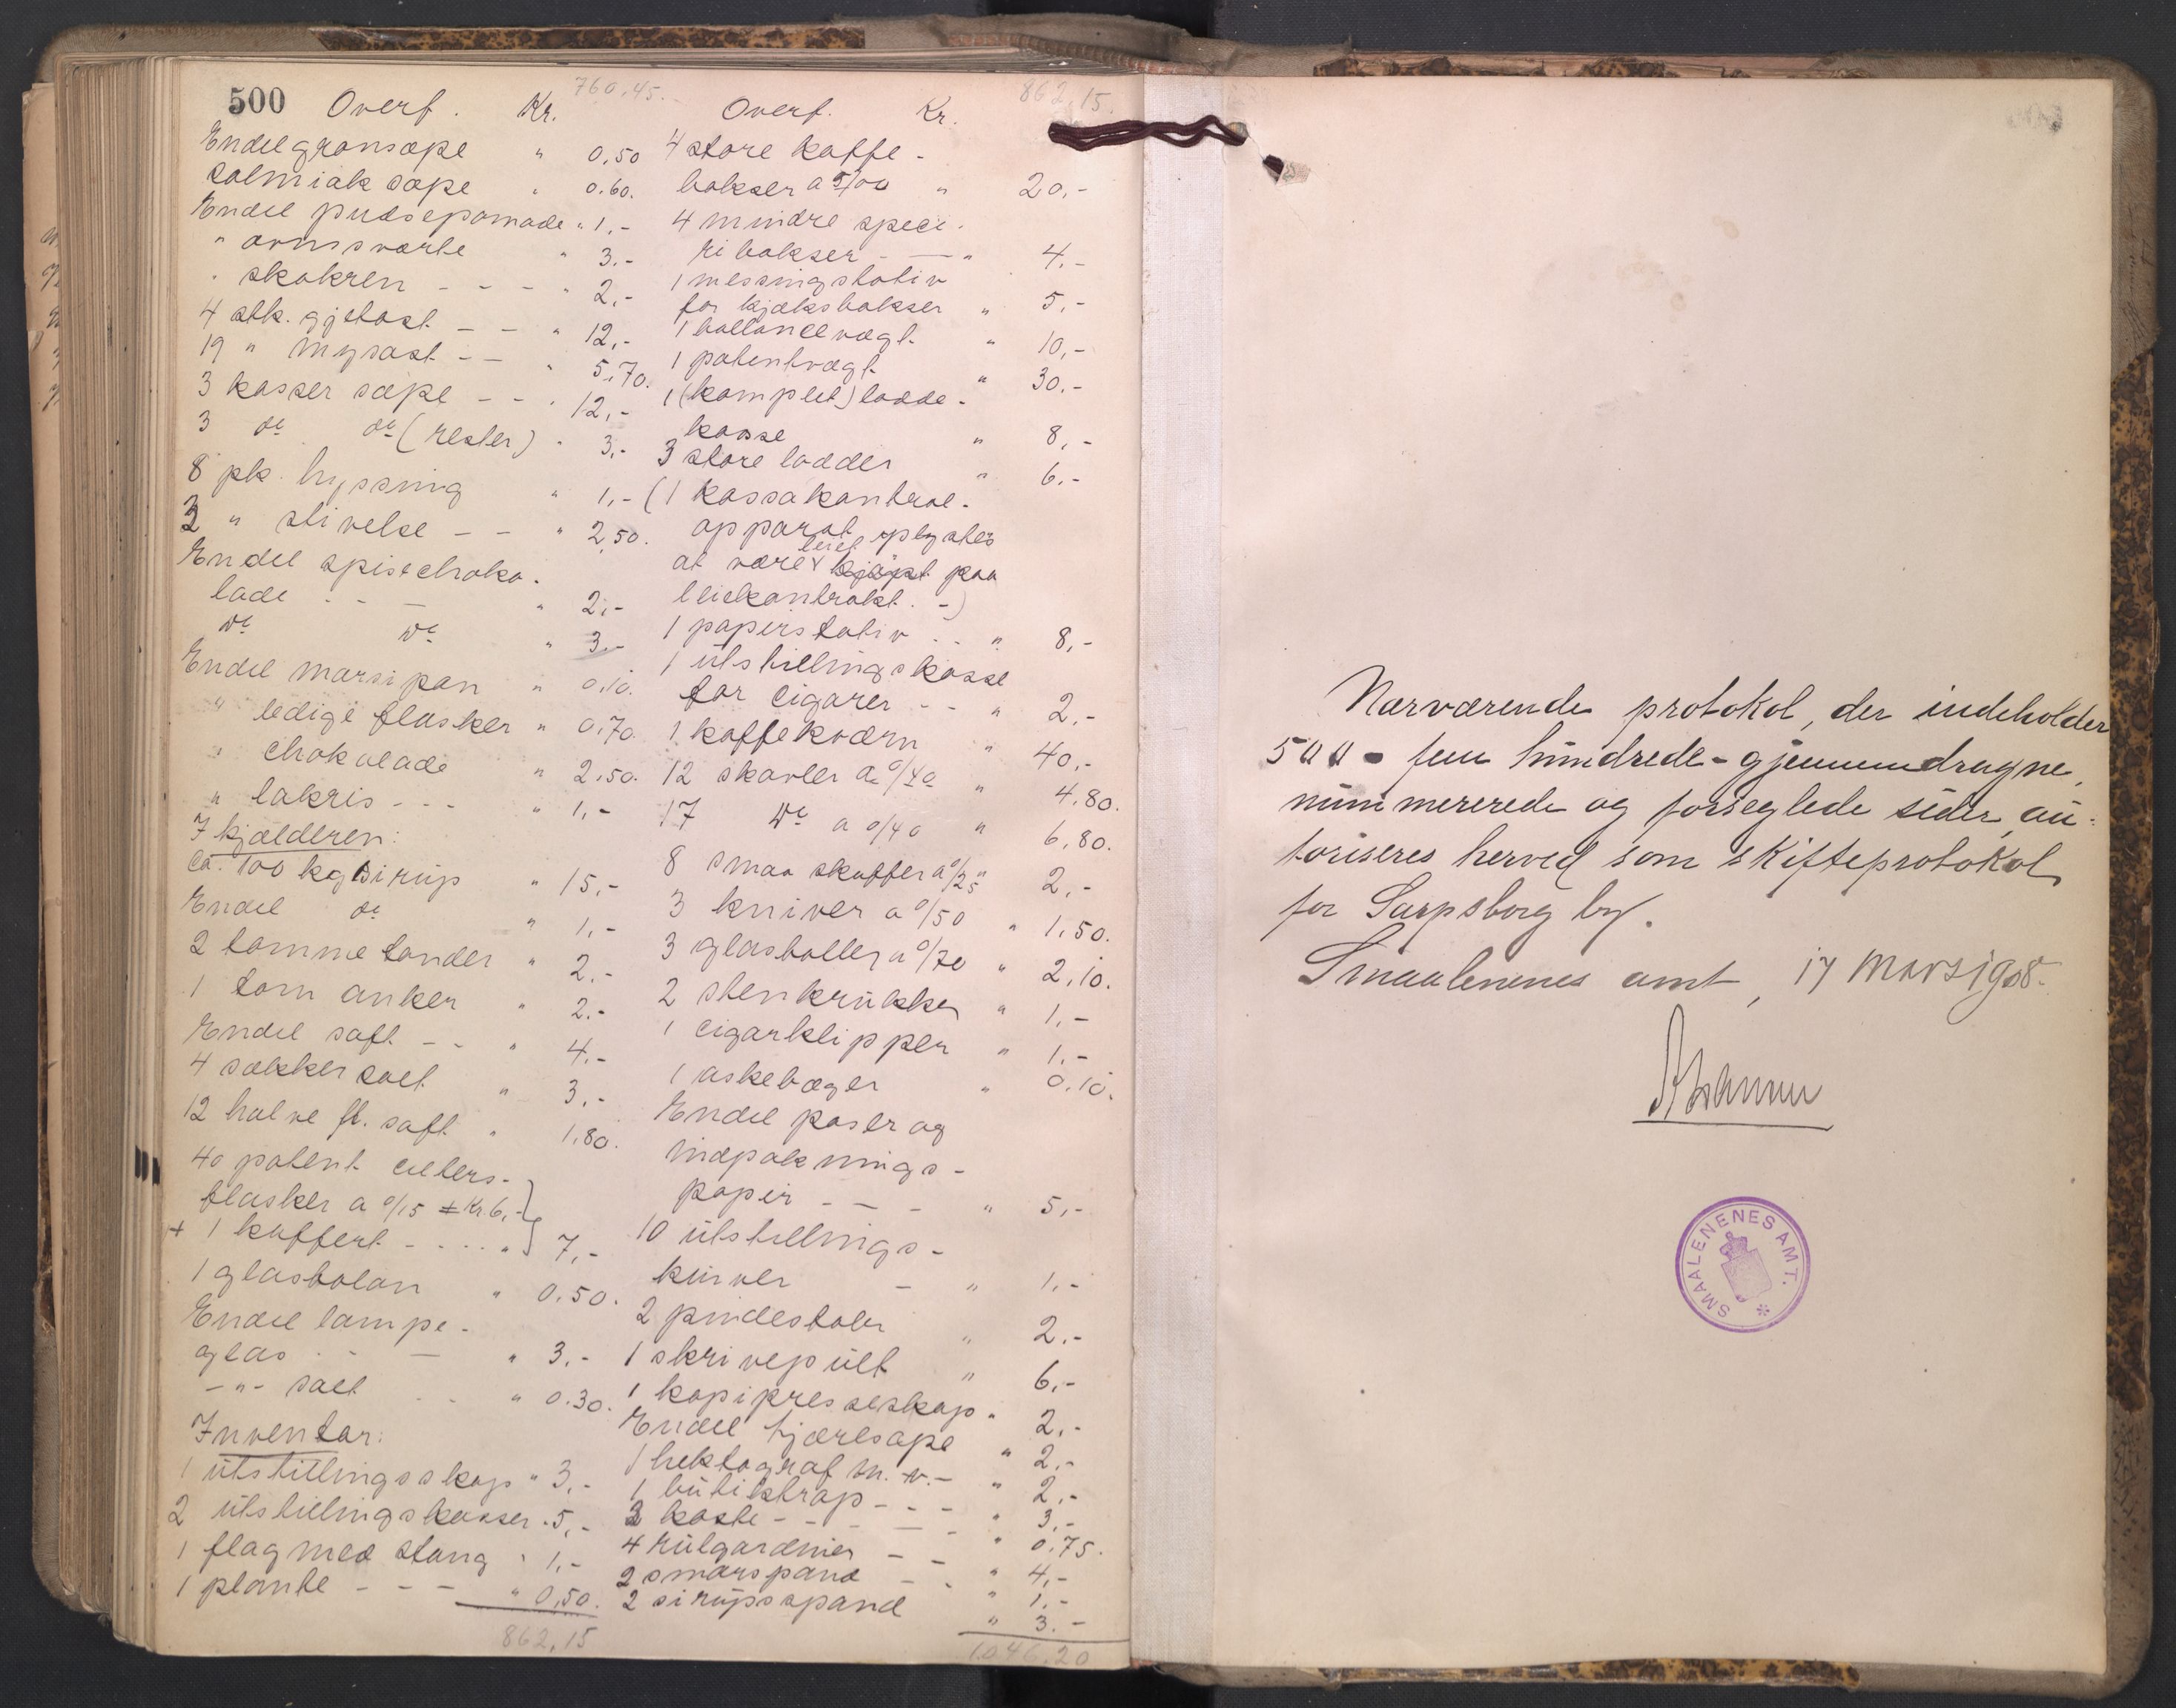 500 Overf. Kr. 760.45.
Endel grønsæpe " 0,50
Salmiak sæpe " 0.60.
Endel pudsepomade " 1,-
" ovnsværte " 3.-
" skokrem - - - " 2,-
4 stk. gjetost - - " 12,-
19 " mysost - - " 5,70.
3 kasser sæpe - - " 12,-
3 do do (rester) " 3,-
8 pk. hyssing " 1,-
3 " stivelse - - " 2,50.
Endel spisechoko-
lade - - - " 2,-
do do " 3.-
Endel marsipan " 0.10.
" ledige flasker " 0,70.
" chokolade " 2.50.
" lakris - - - " 1,-
I kjælderen:
Ca. 100 kg sirup " 15,-
Endel do " 1,-
2 tomme tønder " 2.-
1 tom anker " 2.-
Endel saft - - " 4.-
4 sækker salt " 3,-
12 halve fl. saft " 1,80.
40 patent
flasker a 0/15 Kr 6,-
+ 1 kuffert - - - - " 7,-
1 " 0.50.
Endel lampe-
glas - - " 3.-
-"- salt - - " 0.30.
Inventar:
1 utstillingsskap " 3,-
2 utstillingskasser " 5,-
1 flag med stang " 1,-
1 plante - - - " 0,50.
862,15
Overf. Kr. 862,15.
4 store kaffe-
bokser a 5/00 " 20,-
4 mindre speci-
ribokser - — " 4.-
1 messingstativ
for kjæksbokser " 5,-
1 ballancevægt " 10,-
1 patentvægt " 30.-
1 (komplet) ladde-
kasse " 8,-
3 store ladder " 6.-
(1 kassakontrol-
apparat oplystes
at være leiet kjøpt paa
leiekontrakt. -)
1 papirstativ - - " 8,-
1 utstillingskasse
for cigarer - - " 2,-
1 kaffekværn " 40,-
12 skovler a 0/40 " 4.80.
17 do a 0/40 " 6,80.
8 smaa skuffer a 0/25 " 2,-
3 kniver a 0/50 " 1,50.
3 glasboller a 0/70 " 2,10.
2 stenkrukker " 1,-
1 cigarklipper " 1.-
1 askebæger " 0.10.
Endel poser og
indpaknings-
papir - - - " 5,-
10 utstillings-
kurver - " 1,-
2 pindestoler " 2.-
1 skrivepult " 6,-
1 kopipresseskap " 2,-
Endel tjæresæpe " 2.-
1 hektograf m. v. - " 2,-
1 butiktrap - - - " 3,-
2 koste - - - - - " 0,75.
4 rulgardiner - - " 4,-
2 smørspand - - " 1,-
2 sirupsspand " 3.-
1.046,20
Nærværende protokol, der indeholder
500 - fem hundrede - gjennemdragne,
nummererede og forseglede sider, au-
toriseres herved som skifteprotokol
for Sarpsborg by.
Smaalenenes amt, 17 mars 1908.
SMAALENENES AMT.